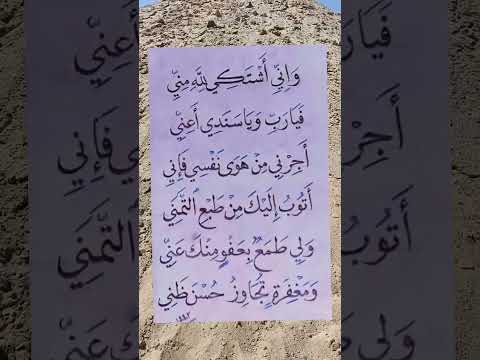 وَإِنِّي أَشْتَكِي لِلَّهِ مِنِّي
فَيَارَبِّ وَيَاسَنَدِي أَعِنِّي
أَجِرْنِي مِنْ هَوَى نَفْسِي فَإِنِي
أَتُوبُ إِلَيْكَ مِنْ طَبْعِ التَّمَنِي
وَلِي طَمَعٌ بِعَفْوٍ مِنْكَ عَنِّي
وَمَغْفِرَةٍ تُجَاوِزُ حُسْنَ ظَنِي
١٤٤٢